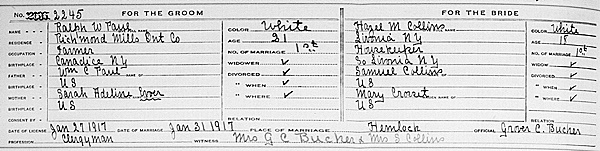 No. 2245 FOR THE GROOM FOR THE BRIDE
NAME Ralph W Paul COLOR White NAME Hazel M Collins COLOR White
RESIDENCE Richmond Mills Ont Co AGE 21 RESIDENCE Livonia NY AGE 18
OCCUPATION Farmer NO. OF MARRIAGE 1st OCCUPATION Housekeeper NO. OF MARRIAGE 1st
BIRTHPLACE Canadice NY WIDOWER ✓ BIRTHPLACE So Livonia NY WIDOWED ✓
FATHER Wm C Paul DIVORCED ✓ FATHER Samuel Collins DIVORCED ✓
BIRTHPLACE U S " WHEN ✓ BIRTHPLACE U S " WHEN ✓
MOTHER Sarah Adeline " WHERE ✓ MOTHER Mary " WHERE ✓
BIRTHPLACE U S BIRTHPLACE U S
CONSENT BY RELATION CONSENT BY RELATION
DATE OF LICENSE Jan 27 1917 DATE OF MARRIAGE Jan 31 1917 PLACE OF MARRIAGE Hemlock OFFICIAL Grover C. Bucher
PROFESSION Clergyman WITNESS Mrs G C Bucher & Mrs S Collins